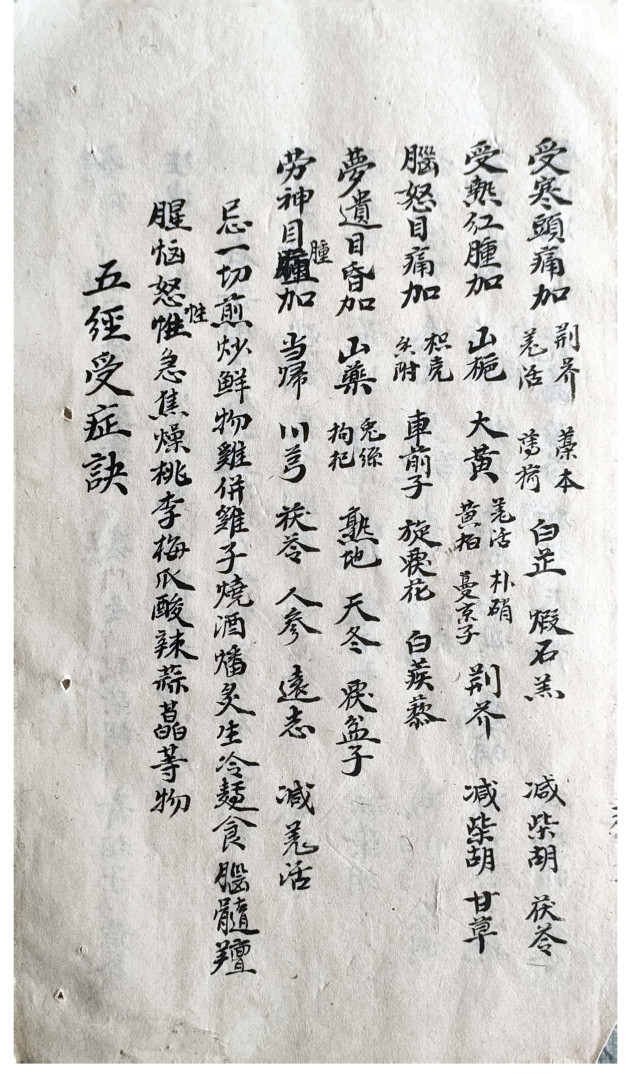 受寒頭痛加 荆芥 羗活 藁本 薄荷 白芷 煆石羔 减柴胡 茯苓
受熱红腫加 山梔 大黄 羗活 黄柏 朴硝 蔓京子 荆芥 减柴胡 甘草
腦怒目痛加 枳壳 香附 車前子 旋覆花 白蒺藜
夢遺目昏加 山藥 兎絲 拘杞 熟地 天冬 覆盆子
劳神目腫加 当歸 川芎 茯苓 人參 遠志 减羗活
腫
忌一切煎炒鮮物雞併雞子燒酒燔炙生冷麵食腦髓羶
腥恼怒惟急焦燥桃李梅瓜酸辣蒜等物
性
五經受症訣